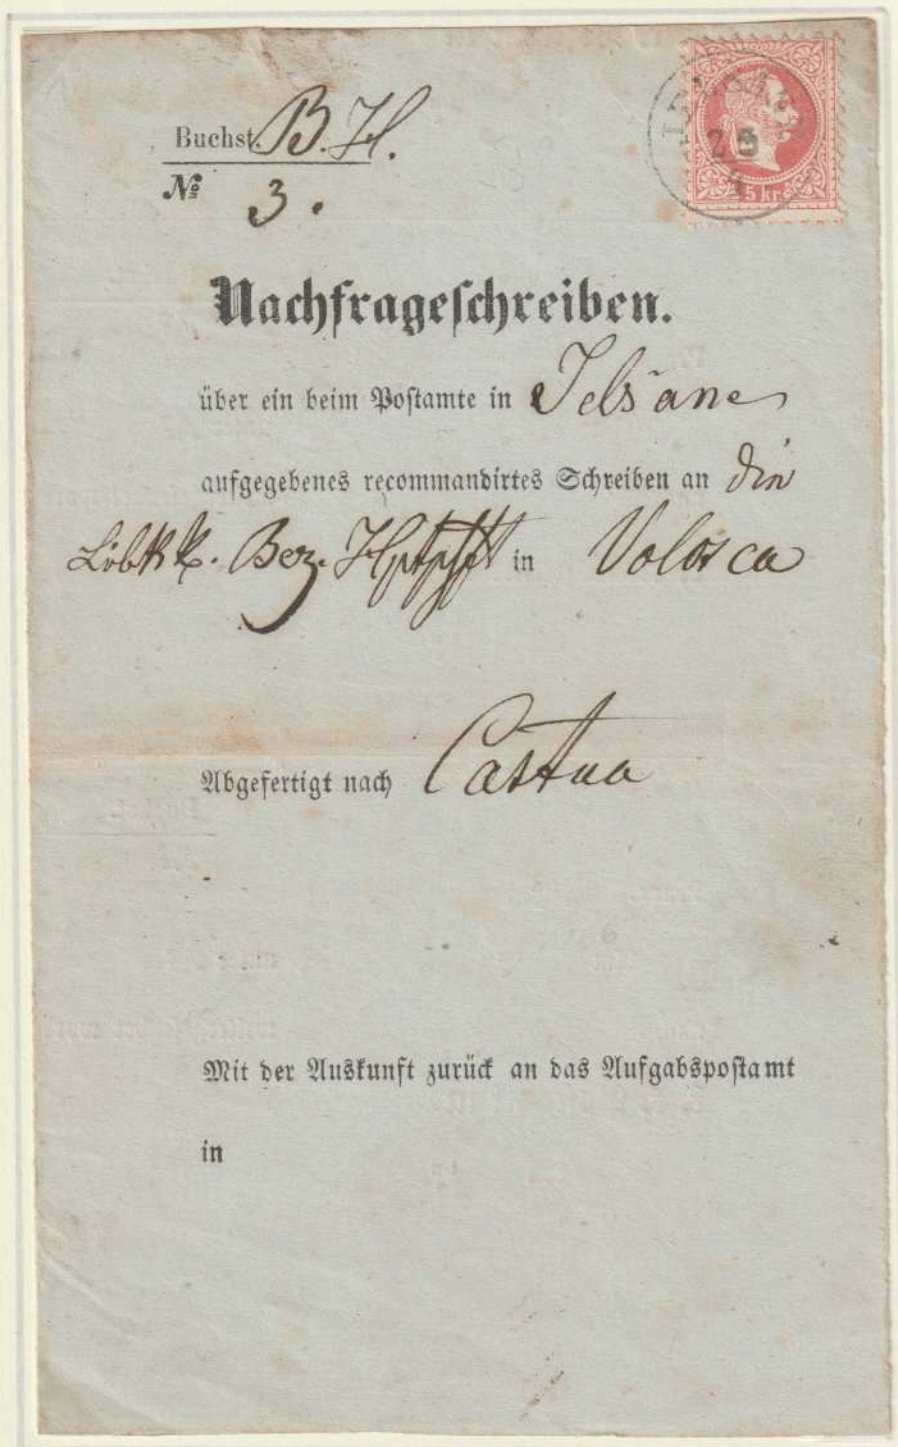 Buchst. B. H.
№ 3.
JELSANE
25
4
5 kr.
Nachfrageschreiben.
über ein beim Postamte in Jelšane
aufgegebenes recommandirtes Schreiben an die
Löbl. k. k. Bez. Hptmschft in Volosca
Abgefertigt nach Castua
Mit der Auskunft zurück an das Aufgabspostamt
in